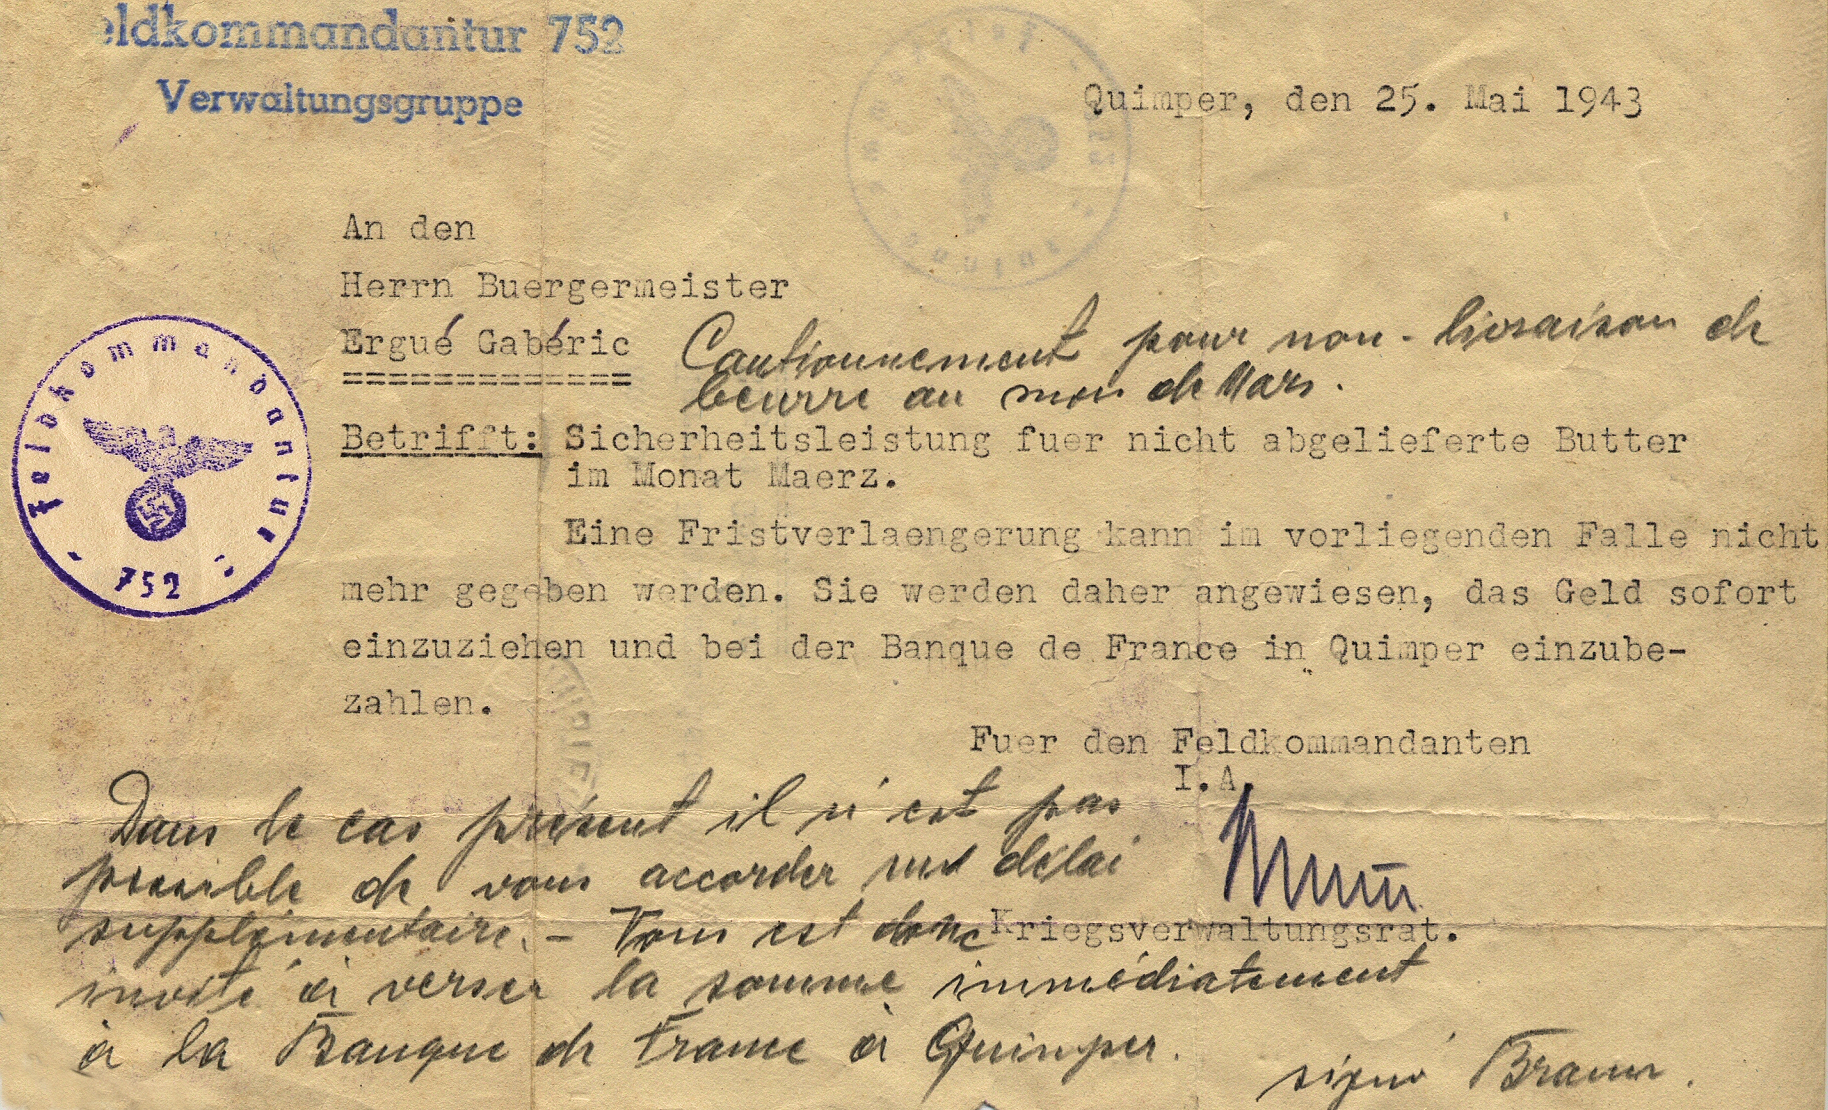 eldkommandantur 752
Verwaltungsgruppe
Quimper, den 25. Mai 1943
An den
Herrn Buergermeister
Ergué Gabéric
=============
Cautionnement pour non-livraison de
beurre au mois de Mars.
Betrifft: Sicherheitsleistung fuer nicht abgelieferte Butter
im Monat Maerz.
Feldkommandantur
752
Eine Fristverlaengerung kann im vorliegenden Falle nicht
mehr gegeben werden. Sie werden daher angewiesen, das Geld sofort
einzuziehen und bei der Banque de France in Quimper einzube-
zahlen.
Fuer den Feldkommandanten
I.A.
Kriegsverwaltungsrat.
Dans le cas présent il n'est pas
possible de vous accorder un délai
supplémentaire. - Vous est donc
invité à verser la somme immédiatement
à la Banque de France à Quimper.
signé Braun.